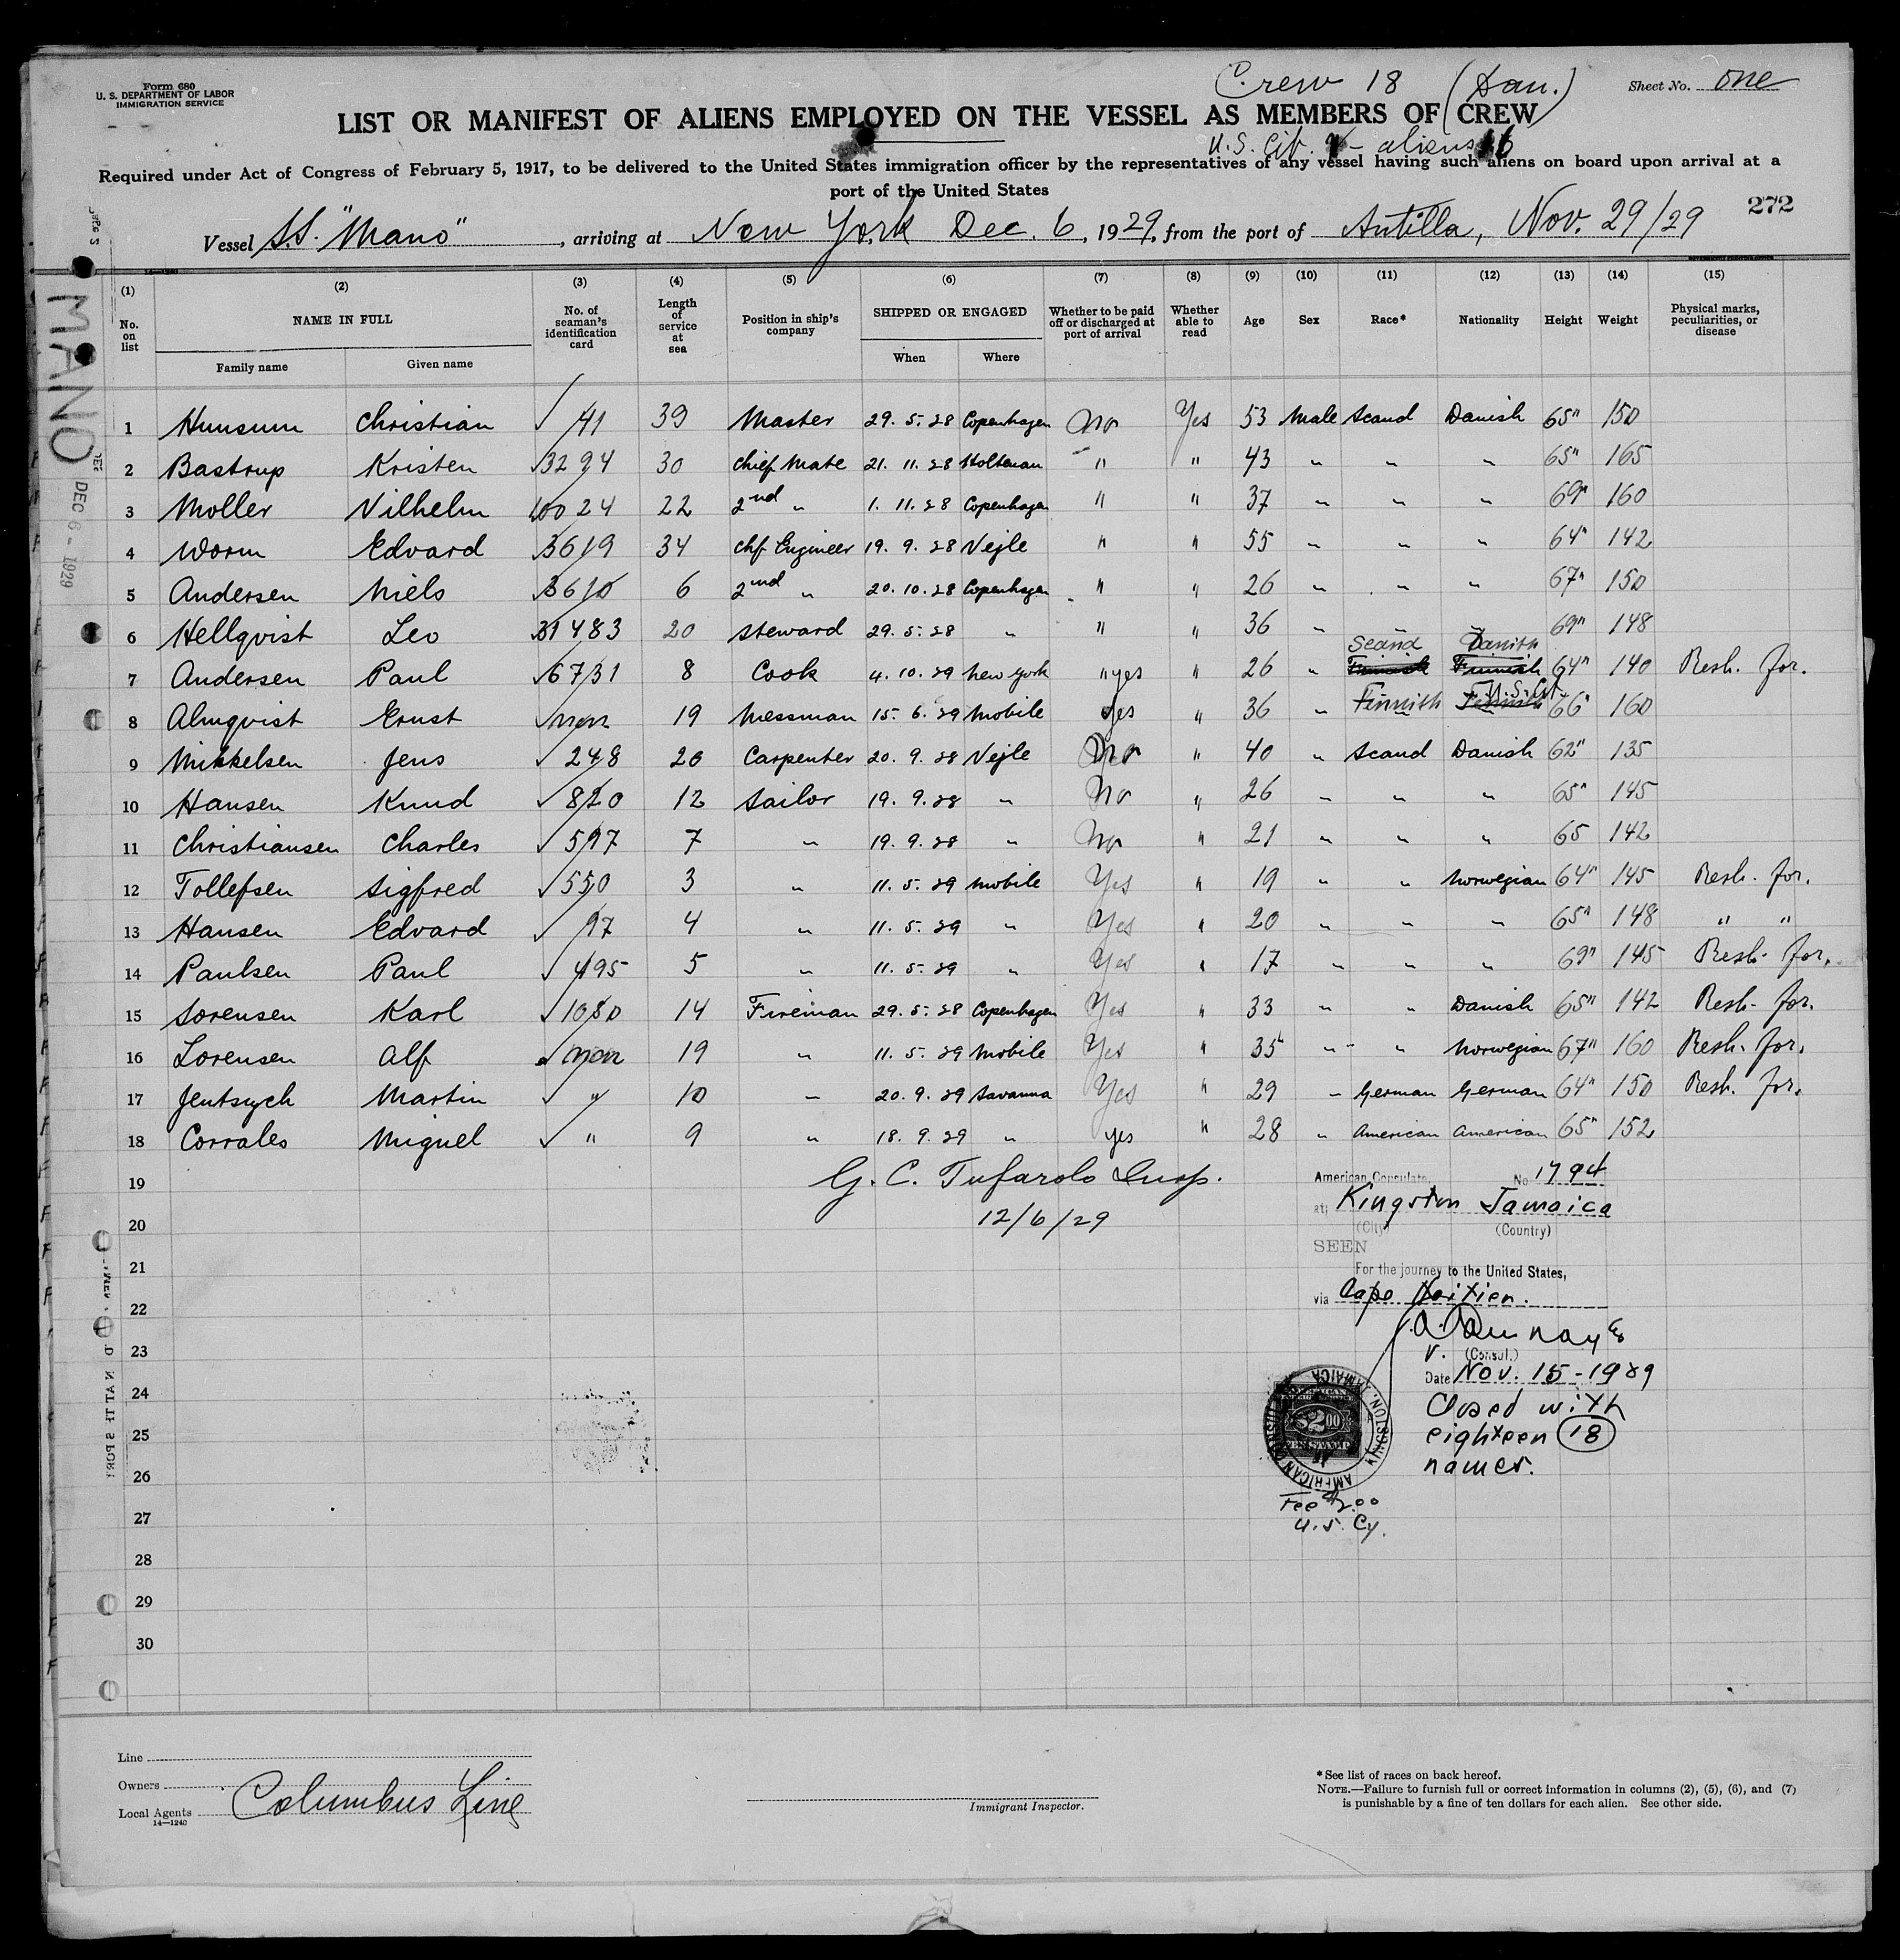 Form 680
U. S. DEPARTMENT OF LABOR
IMMIGRATION SERVICE
Crew 18 (Dan.)
Sheet No. one
LIST OR MANIFEST OF ALIENS EMPLOYED ON THE VESSEL AS MEMBERS OF CREW
U.S. Cit. - aliens
Required under Act of Congress of February 5, 1917, to be delivered to the United States immigration officer by the representatives of any vessel having such aliens on board upon arrival at a
port of the United States
272
Vessel S.S. "Mano", arriving at New York Dec. 6, 1929, from the port of Antilla, Nov. 29/29
MANO
DEC 6 - 1929
(1) (2) (3) (4) (5) (6) (7) (8) (9) (10) (11) (12) (13) (14) (15)
No. on list NAME IN FULL No. of seaman's identification card Length of service at sea Position in ship's company SHIPPED OR ENGAGED Whether to be paid off or discharged at port of arrival Whether able to read Age Sex Race* Nationality Height Weight Physical marks, peculiarities, or disease
Family name Given name When Where
1 Hunsum Christian 41 39 Master 29. 5. 28 Copenhagen No Yes 53 Male Scand Danish 65" 150
2 Bastrup Kristen 3294 30 Chief Mate 21. 11. 28 Holtenau " " 43 " " " 65" 165
3 Moller Vilhelm 10024 22 2nd " 1. 11. 28 Copenhagen " " 37 " " " 69" 160
4 Worm Edvard 3619 34 Chf. Engineer 19. 9. 28 Vejle " " 55 " " " 64" 142
5 Andersen Niels 3610 6 2nd " 20. 10. 28 Copenhagen " " 26 " " " 67" 150
6 Hellqvist Leo 31483 20 Steward 29. 5. 28 " " " 36 " " " 69" 148
Scand Danish
7 Andersen Paul 6731 8 Cook 4. 10. 29 New York " yes " 26 " Finnish Finnish 64" 140 Resh. for.
8 Almqvist Ernst non 19 Messman 15. 6. 29 Mobile yes " 36 " Finnish U.S. Cit. 66" 160
9 Mikkelsen Jens 248 26 Carpenter 20. 9. 28 Vejle No " 40 " Scand Danish 62" 135
10 Hansen Knud 820 12 Sailor 19. 9. 28 " No " 26 " " " 65" 145
11 Christiansen Charles 597 7 " 19. 9. 28 " No " 21 " " " 65 142
12 Tollefsen Sigfred 550 3 " 11. 5. 29 Mobile Yes " 19 " " Norwegian 64" 145 Resh. for.
13 Hansen Edvard 97 4 " 11. 5. 29 " Yes " 20 " " " 65" 148 " "
14 Paulsen Paul 495 5 " 11. 5. 29 " Yes " 17 " " " 69" 145 Resh. for.
15 Sorensen Karl 1080 14 Fireman 29. 5. 28 Copenhagen Yes " 33 " " Danish 65" 142 Resh. for.
16 Lorensen Alf non 19 " 11. 5. 29 Mobile Yes " 35 " " Norwegian 67" 160 Resh. for.
17 Jentsych Martin " 10 " 20. 9. 29 Savanna Yes " 29 " German German 64" 150 Resh. for.
18 Corrales Miguel " 9 " 18. 9. 29 " yes " 28 " American American 65" 152
19
G. C. Tufarolo Insp.
12/6/29
20
21
22
23
24
25
26
27
28
29
30
American Consulate, No 1794
at Kingston Jamaica
(City) (Country)
SEEN
For the journey to the United States,
via Cape Haitien.
V. (Consul.)
Date Nov. 15-1929
Closed with
eighteen 18
names.
AMERICAN KINGSTON, JAMAICA
$2.00
Fee $2.00
U.S. Cy.
Line
Owners
Local Agents Columbus Line
14—1240
Immigrant Inspector.
*See list of races on back hereof.
NOTE.—Failure to furnish full or correct information in columns (2), (5), (6), and (7)
is punishable by a fine of ten dollars for each alien. See other side.